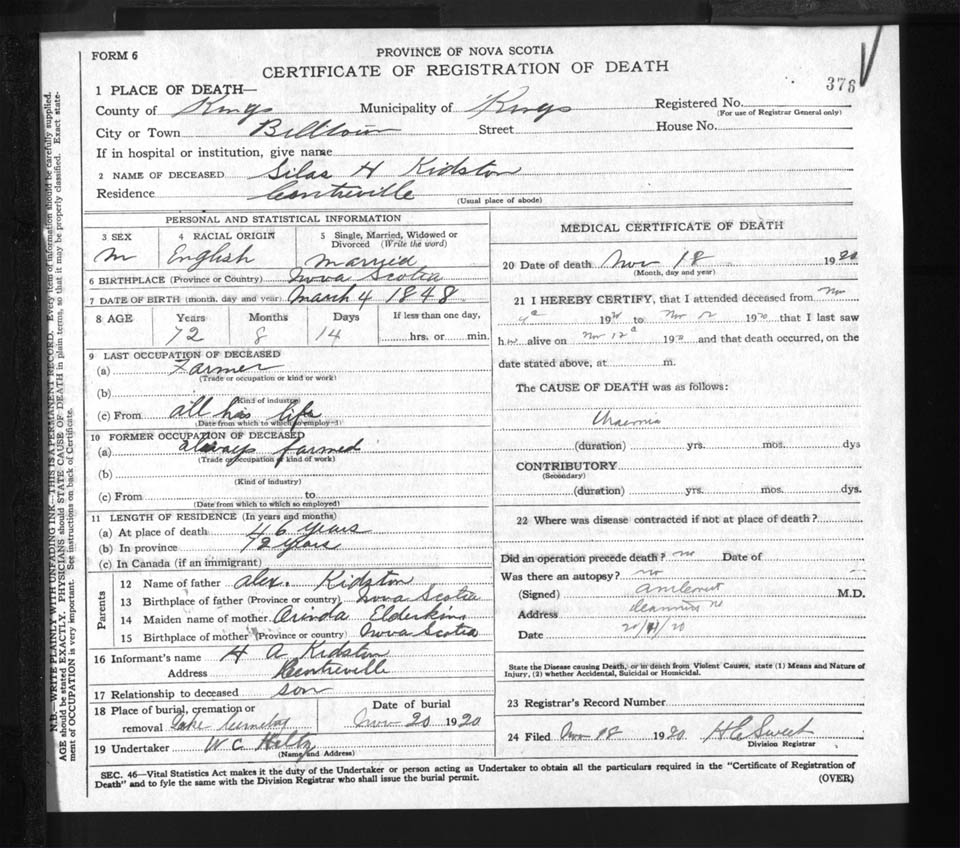 FORM 6
PROVINCE OF NOVA SCOTIA
CERTIFICATE OF REGISTRATION OF DEATH
376
1 PLACE OF DEATH—
County of Kings Municipality of Kings Registered No.
(For use of Registrar General only)
City or Town Billtown Street House No.
If in hospital or institution, give name
2 NAME OF DECEASED Silas H Kidston
Residence Centreville
(Usual place of abode)
PERSONAL AND STATISTICAL INFORMATION
3 SEX 4 RACIAL ORIGIN 5 Single, Married, Widowed or Divorced (Write the word)
M English Married
6 BIRTHPLACE (Province or Country) Nova Scotia
7 DATE OF BIRTH (month, day and year) March 4 1848
8 AGE Years Months Days If less than one day,
72 8 14 hrs. or min.
9 LAST OCCUPATION OF DECEASED
(a) Farmer
(Trade or occupation or kind or work)
(b)
(Kind of industry)
(c) From all his life
(Date from which to which so employ-d)
10 FORMER OCCUPATION OF DECEASED
(a) always farmed
(Trade or occupation or kind of work)
(b)
(Kind of industry)
(c) From to
(Date from which to which so employed)
11 LENGTH OF RESIDENCE (In years and months)
(a) At place of death 46 years
(b) In province 72 years
(c) In Canada (if an immigrant)
Parents
12 Name of father Alex. Kidston
13 Birthplace of father (Province or country) Nova Scotia
14 Maiden name of mother Orinda Elderkin
15 Birthplace of mother (Province or country) Nova Scotia
16 Informant's name H A Kidston
Address Centreville
17 Relationship to deceased son
18 Place of burial, cremation or Date of burial
removal Nov 20 1920
19 Undertaker W C
(Name and Address)
MEDICAL CERTIFICATE OF DEATH
20 Date of death Nov 18 1920
(Month, day and year)
21 I HEREBY CERTIFY, that I attended deceased from Nov
19 to Nov 12 1920 that I last saw
h alive on Nov 12 19 and that death occurred, on the
date stated above, at m.
The CAUSE OF DEATH was as follows:
Uraemia
(duration) yrs. mos. dys
CONTRIBUTORY
(Secondary)
(duration) yrs. mos. dys.
22 Where was disease contracted if not at place of death?
Did an operation precede death? no Date of
Was there an autopsy? no
(Signed) M.D.
Address
Date 20/11/20
State the Disease causing Death, or in death from Violent Causes, state (1) Means and Nature of
Injury, (2) whether Accidental, Suicidal or Homicidal.
23 Registrar's Record Number
24 Filed Nov 18 1920 H E Sweet
Division Registrar
SEC. 46—Vital Statistics Act makes it the duty of the Undertaker or person acting as Undertaker to obtain all the particulars required in the "Certificate of Registration of
Death" and to fyle the same with the Division Registrar who shall issue the burial permit.
(OVER)
N.B.—WRITE PLAINLY WITH UNFADING INK—THIS IS A PERMANENT RECORD. Every item of information should be carefully supplied.
AGE should be stated EXACTLY. PHYSICIANS should STATE CAUSE OF DEATH in plain terms, so that it may be properly classified. Exact state-
ment of OCCUPATION is very important. See instructions on back of Certificate.